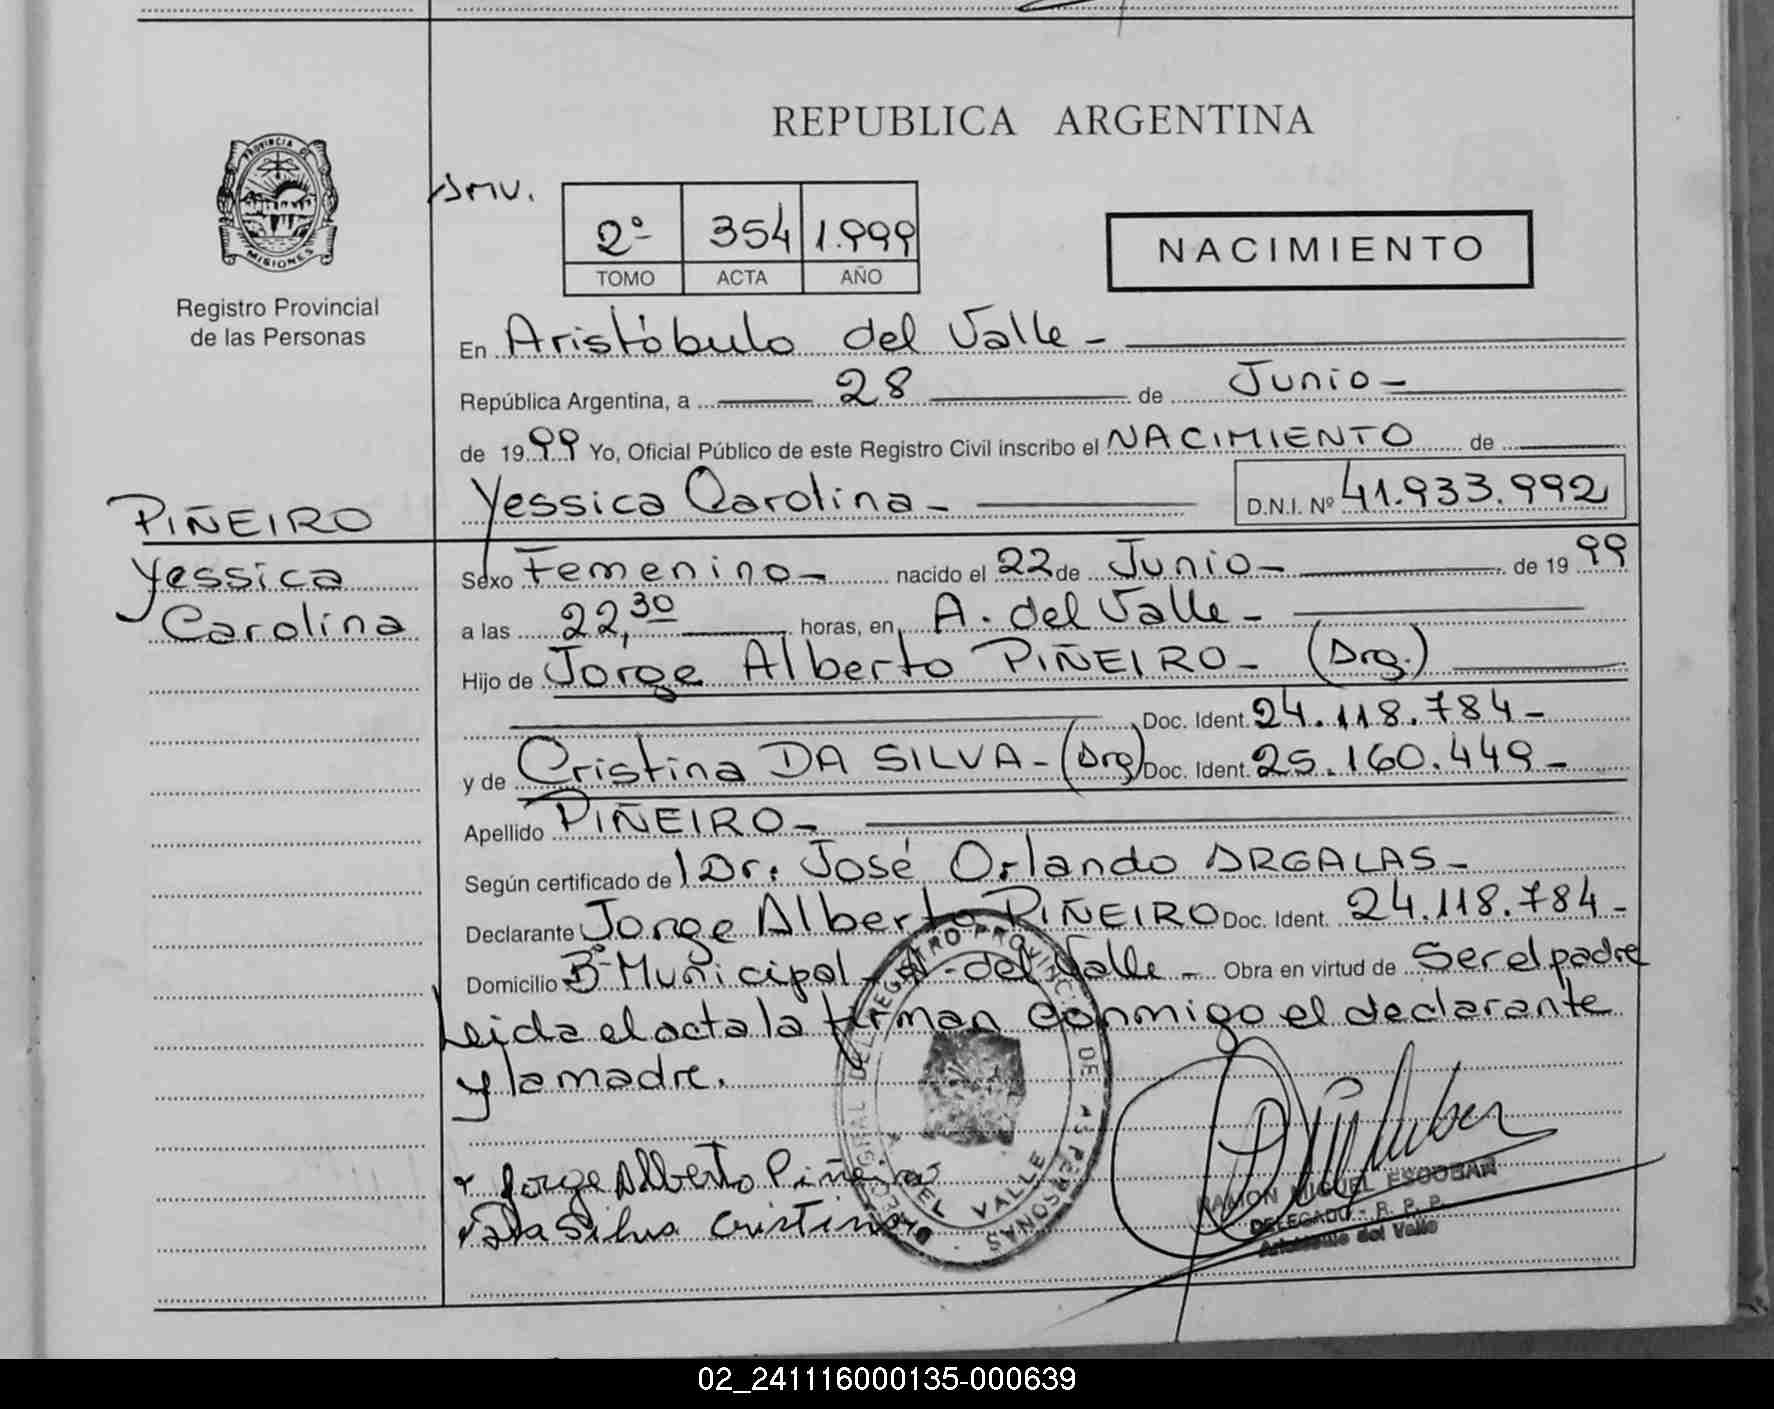 REPUBLICA ARGENTINA
PROVINCIA DE MISIONES
Registro Provincial
de las Personas
2º 354 1.999
TOMO ACTA AÑO
NACIMIENTO
En Aristóbulo del Valle -
República Argentina, a 28 de Junio -
de 1999 Yo, Oficial Público de este Registro Civil inscribo el NACIMIENTO de
Yessica Carolina - D.N.I. Nº 41.933.992
PIÑEIRO
Yessica
Carolina
Sexo Femenino - nacido el 22 de Junio - de 1999
a las 22,30 horas, en A. del Valle -
Hijo de Jorge Alberto PIÑEIRO - (Arg.)
Doc. Ident. 24.118.784 -
y de Cristina DA SILVA - (Arg) Doc. Ident. 25.160.449 -
Apellido PIÑEIRO -
Según certificado de Dr. José Orlando ARGALAS -
Declarante Jorge Alberto PIÑEIRO Doc. Ident. 24.118.784 -
Domicilio Bº Municipal - A. del Valle - Obra en virtud de Ser el padre
Leida el acta la firman conmigo el declarante
y la madre.
Jorge Alberto Piñeiro
Da Silva Cristina
REGISTRO PROVINCIAL DE LAS PERSONAS
DEL VALLE
RAMON MIGUEL ESCOBAR
DELEGADO - R. P. P.
Aristóbulo del Valle
02_241116000135-000639